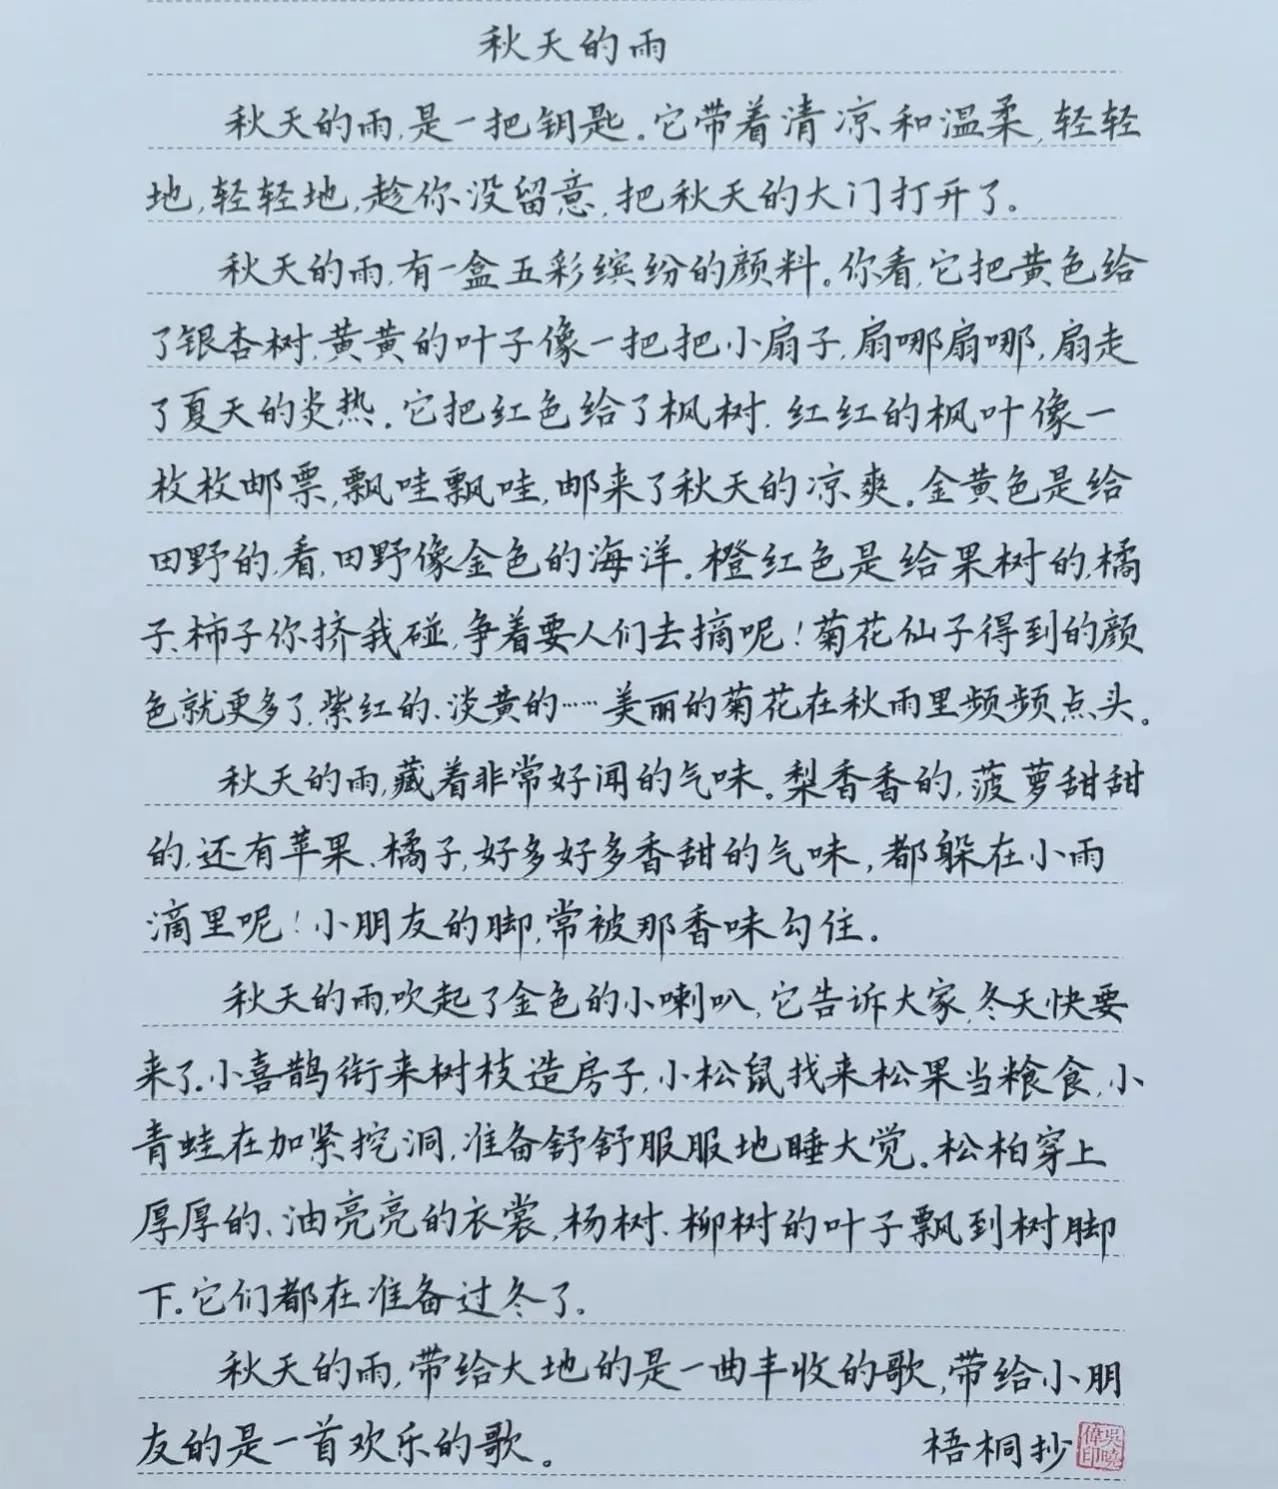 秋天的雨
秋天的雨,是一把钥匙。它带着清凉和温柔,轻轻
地,轻轻地,趁你没留意,把秋天的大门打开了。
秋天的雨,有一盒五彩缤纷的颜料。你看,它把黄色给
了银杏树,黄黄的叶子像一把把小扇子,扇哪扇哪,扇走
了夏天的炎热。它把红色给了枫树,红红的枫叶像一
枚枚邮票,飘哇飘哇,邮来了秋天的凉爽。金黄色是给
田野的,看,田野像金色的海洋。橙红色是给果树的,橘
子、柿子你挤我碰,争着要人们去摘呢!菊花仙子得到的颜
色就更多了,紫红的、淡黄的……美丽的菊花在秋雨里频频点头。
秋天的雨,藏着非常好闻的气味。梨香香的,菠萝甜甜
的,还有苹果、橘子,好多好多香甜的气味,都躲在小雨
滴里呢!小朋友的脚,常被那香味勾住。
秋天的雨,吹起了金色的小喇叭,它告诉大家,冬天快要
来了。小喜鹊衔来树枝造房子,小松鼠找来松果当粮食,小
青蛙在加紧挖洞,准备舒舒服服地睡大觉。松柏穿上
厚厚的、油亮亮的衣裳,杨树、柳树的叶子飘到树脚
下。它们都在准备过冬了。
秋天的雨,带给大地的是一曲丰收的歌,带给小朋
友的是一首欢乐的歌。
梧桐抄
吳曉偉印